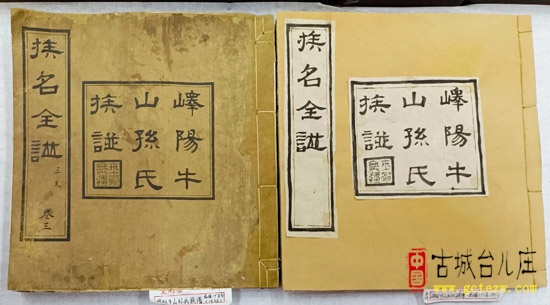 族名全譜
三支
卷三
嶧陽牛
山孫氏
族譜
族名全譜
嶧陽牛
山孫氏
族譜
中国
古城台儿庄
www.gctezw.com